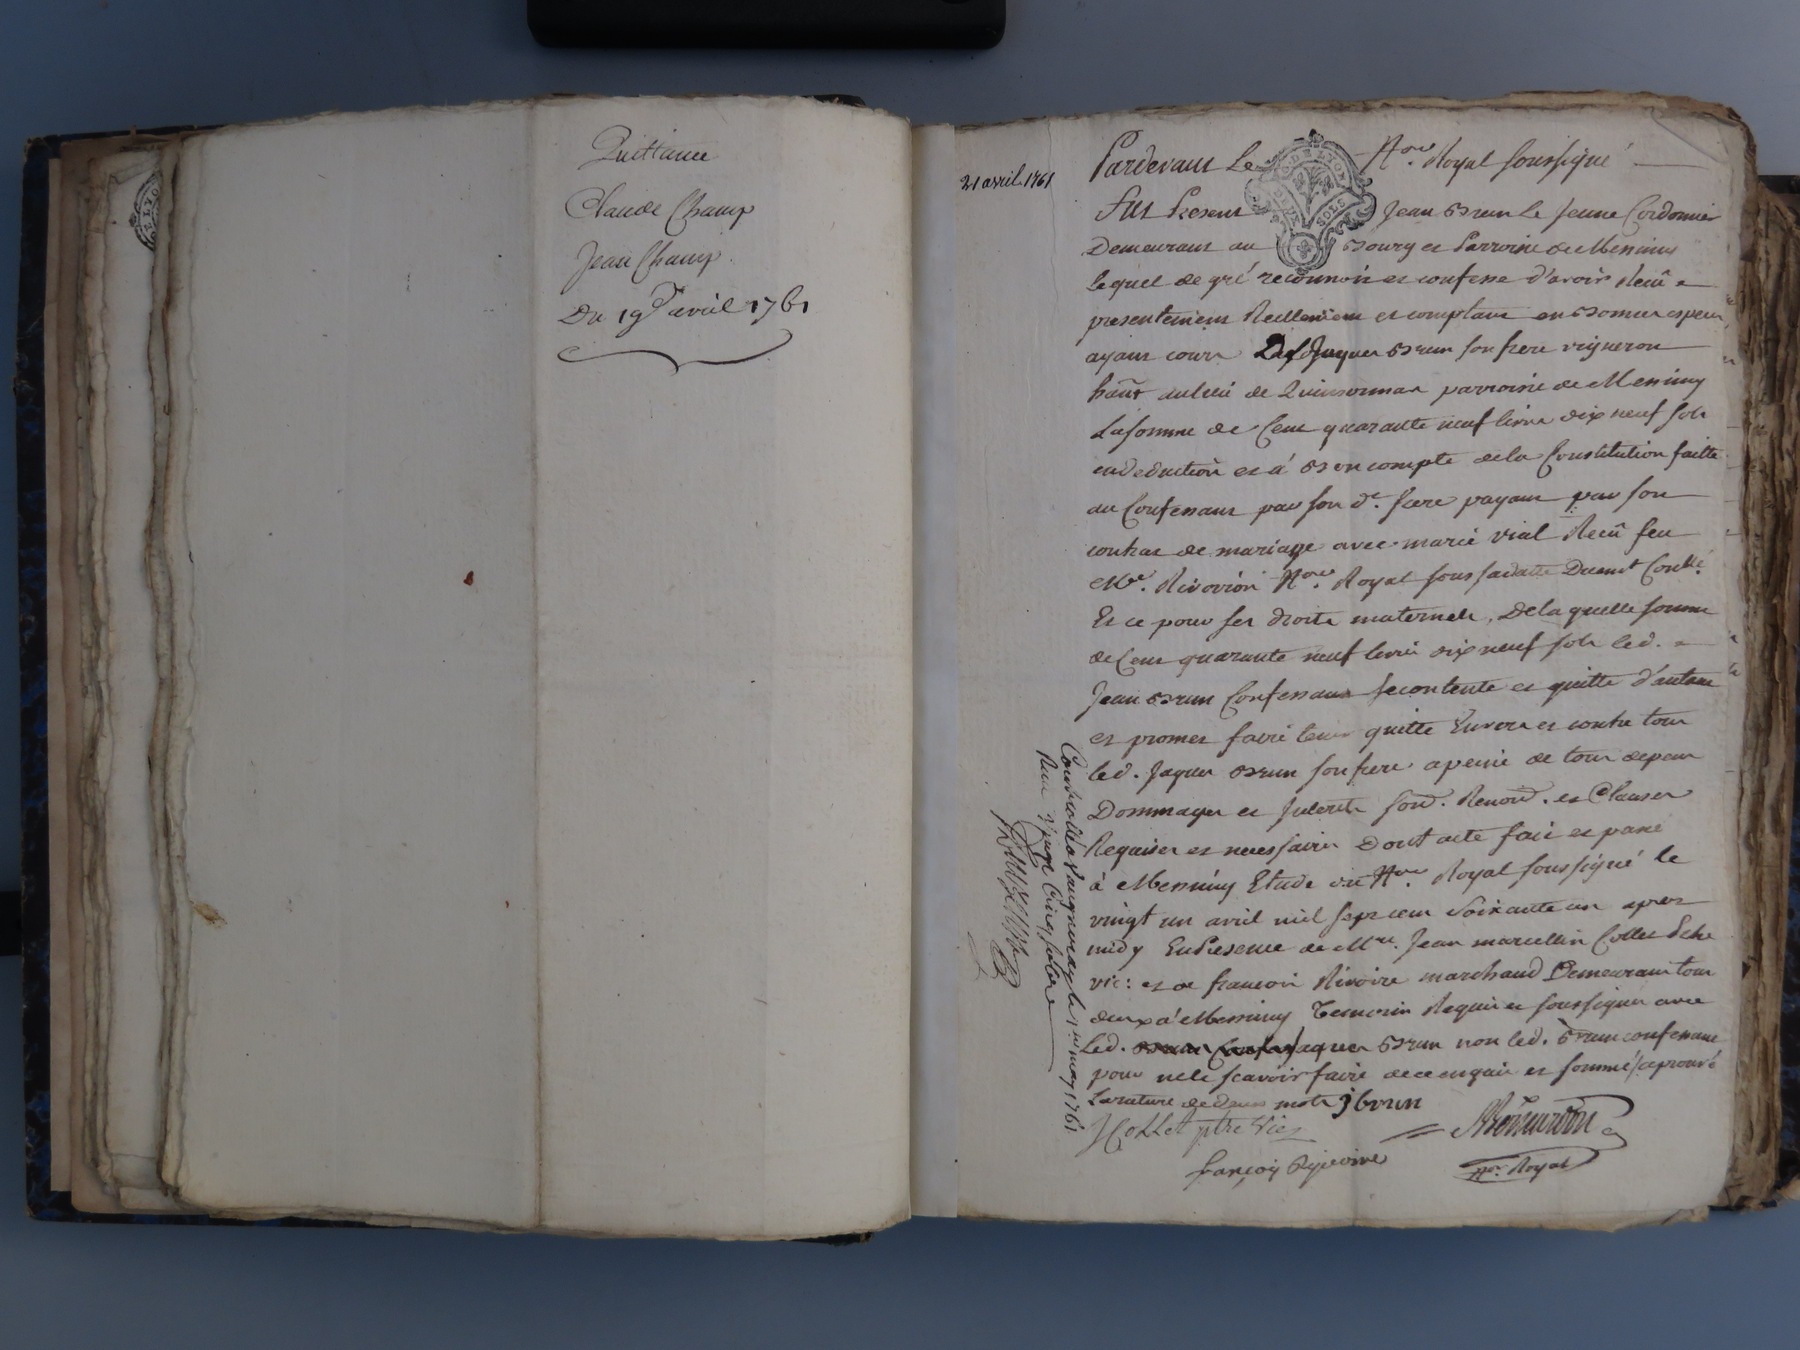 Quittance
Claude Champ
Jean Champ.
Du 19e avril 1761
21 avril 1761
G. DE LYON
DEUX SOLS
Pardevant Le Nore. Royal soussigné
Fut Present Jean Brun Le Jeune Cordonnier
Demeurant au Bourg et Parroisse de Messimy
Lequel de gré reconnoit et confesse d'avoir Reçû
presentement Reellement et comptant en Bonnes especes
ayant cours De Jaques Brun son frere vigneron
habt. au lieu de parroisse de Messimy
La somme de Cent quarante neuf livres dix neuf sols
en deduction et á Bon compte de la Constitution faitte
au Confessant par son d. frere payant par son
contrat de mariage avec marie vial Reçû feu
Me. Nore. Royal sous sa datte Duemt Contllé.
Et ce pour ses droits maternels, De laquelle somme
de Cent quarante neuf livres dix neuf sols led.
Jean Brun Confessant se contente et quitte d'autant
et promet faire tenir quitte Envers et contre tous
led. Jaques Brun son frere a peine de tous depens
Dommages et Interets soud. Renond. et Clauses
Requises et necessaires Dont acte fait et passé
à Messimy Etude du Nore. Royal soussigné le
vingt un avril mil sept cent soixante un apres
midy En Presence de Mre. Jean marcellin Collet
vic: et de francois Rivoire marchand Demeurant tous
deux a' Messimy Temoins Requis et soussignés avec
Led. Jaques Brun non led. Brun confessant
pour ne le scavoir faire de ce enquis et sommé / aprouvé
La rature de deux mots j brun
J Collet ptre Vic
françois
Nore. Royal
Controllé à Vaugneray le 1er may 1761
Reçu